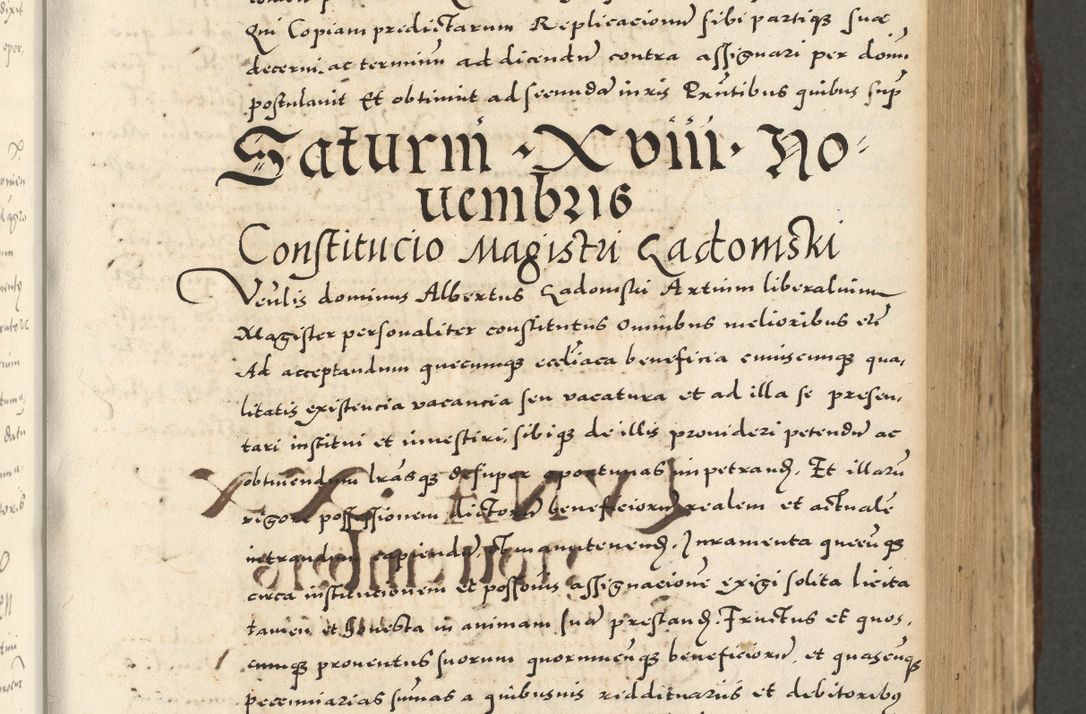 qui Copiam predictarum Replicacionũ sibi partiqꝫ suae
decerni ac terminũ ad dicendũ contra assignari per dominũ
postulavit Et obtinuit ad secundã iuris Pñtibus quibus supͬ
Saturni · XVIII · No-
uembris
Constitucio Magistri Ladomski
Venlis dominus Albertus Ladomski Artium liberalium
Magister personaliter constitutus Omnibus melioribus etc̃
Ad acceptandum quecumqꝫ eccl̃iaca beneficia cuiuscumqꝫ qua,
litatis existencia vacancia seu vacatura et ad illa se presen,
tari institui et inuestiri, sibiqꝫ de illis prouideri petendũ ac
obtinendum lr̃asqꝫ desuper oportunas impetrand. Et illarũ
vigore possessionem dictorũ beneficiorũ realem et actualẽ
intrandum capiendã, et manutenend. Iuramenta quecũqꝫ
circa institucionem et possonis assignacionẽ exigi solita licita
tamen et honesta in animam suã prestand. Fructus et quos,
cumqꝫ prouentus suorum quorumcũqꝫ beneficiorũ, et quascũqꝫ
pecuniarias sum̃as a quibusuis reddituariis et debitoribꝫ